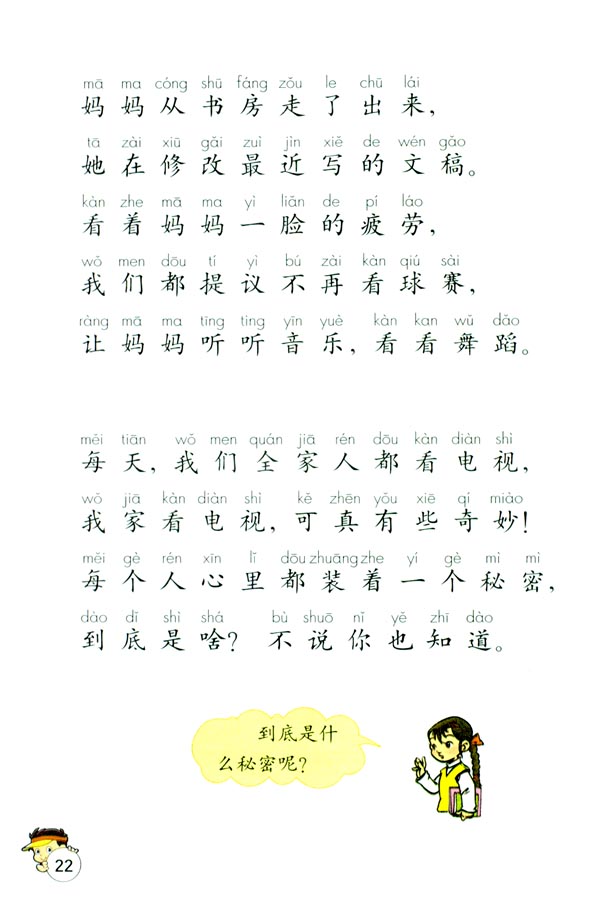 mā ma cóng shū fáng zǒu le chū lái
妈妈从书房走了出来，
tā zài xiū gǎi zuì jìn xiě de wén gǎo
她在修改最近写的文稿。
kàn zhe mā ma yì liǎn de pí láo
看着妈妈一脸的疲劳，
wǒ men dōu tí yì bú zài kàn qiú sài
我们都提议不再看球赛，
ràng mā ma tīng ting yīn yuè kàn kan wǔ dǎo
让妈妈听听音乐，看看舞蹈。
měi tiān wǒ men quán jiā rén dōu kàn diàn shì
每天，我们全家人都看电视，
wǒ jiā kàn diàn shì kě zhēn yǒu xiē qí miào
我家看电视，可真有些奇妙！
měi gè rén xīn lǐ dōu zhuāng zhe yí gè mì mì
每个人心里都装着一个秘密，
dào dǐ shì shá bù shuō nǐ yě zhī dào
到底是啥？ 不说你也知道。
到底是什
么秘密呢？
22